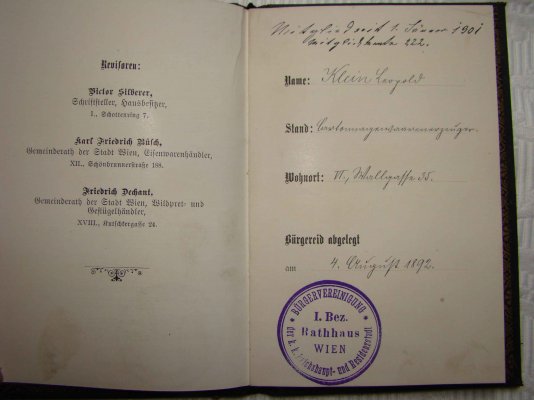 Revisoren:
Victor Silberer,
Schriftsteller, Hausbesitzer,
I., Schottenring 7.
Karl Friedrich Rüsch,
Gemeinderath der Stadt Wien, Eisenwarenhändler,
XII., Schönbrunnerstraße 188.
Friedrich Dechant,
Gemeinderath der Stadt Wien, Wildpret- und
Geflügelhändler,
XVIII., Kutschkergasse 24.
Mitglied seit 1. Jänner 1901
Mitgliedskarte 222.
Name: Klein Leopold
Stand: Cartonnagenwaarenerzeuger.
Wohnort: VI., Wallgasse 35.
Bürgereid abgelegt
am 4. August 1892.
BÜRGERVEREINIGUNG
I. Bez.
Rathhaus
WIEN
der k. k. Reichshaupt- und Residenzstadt